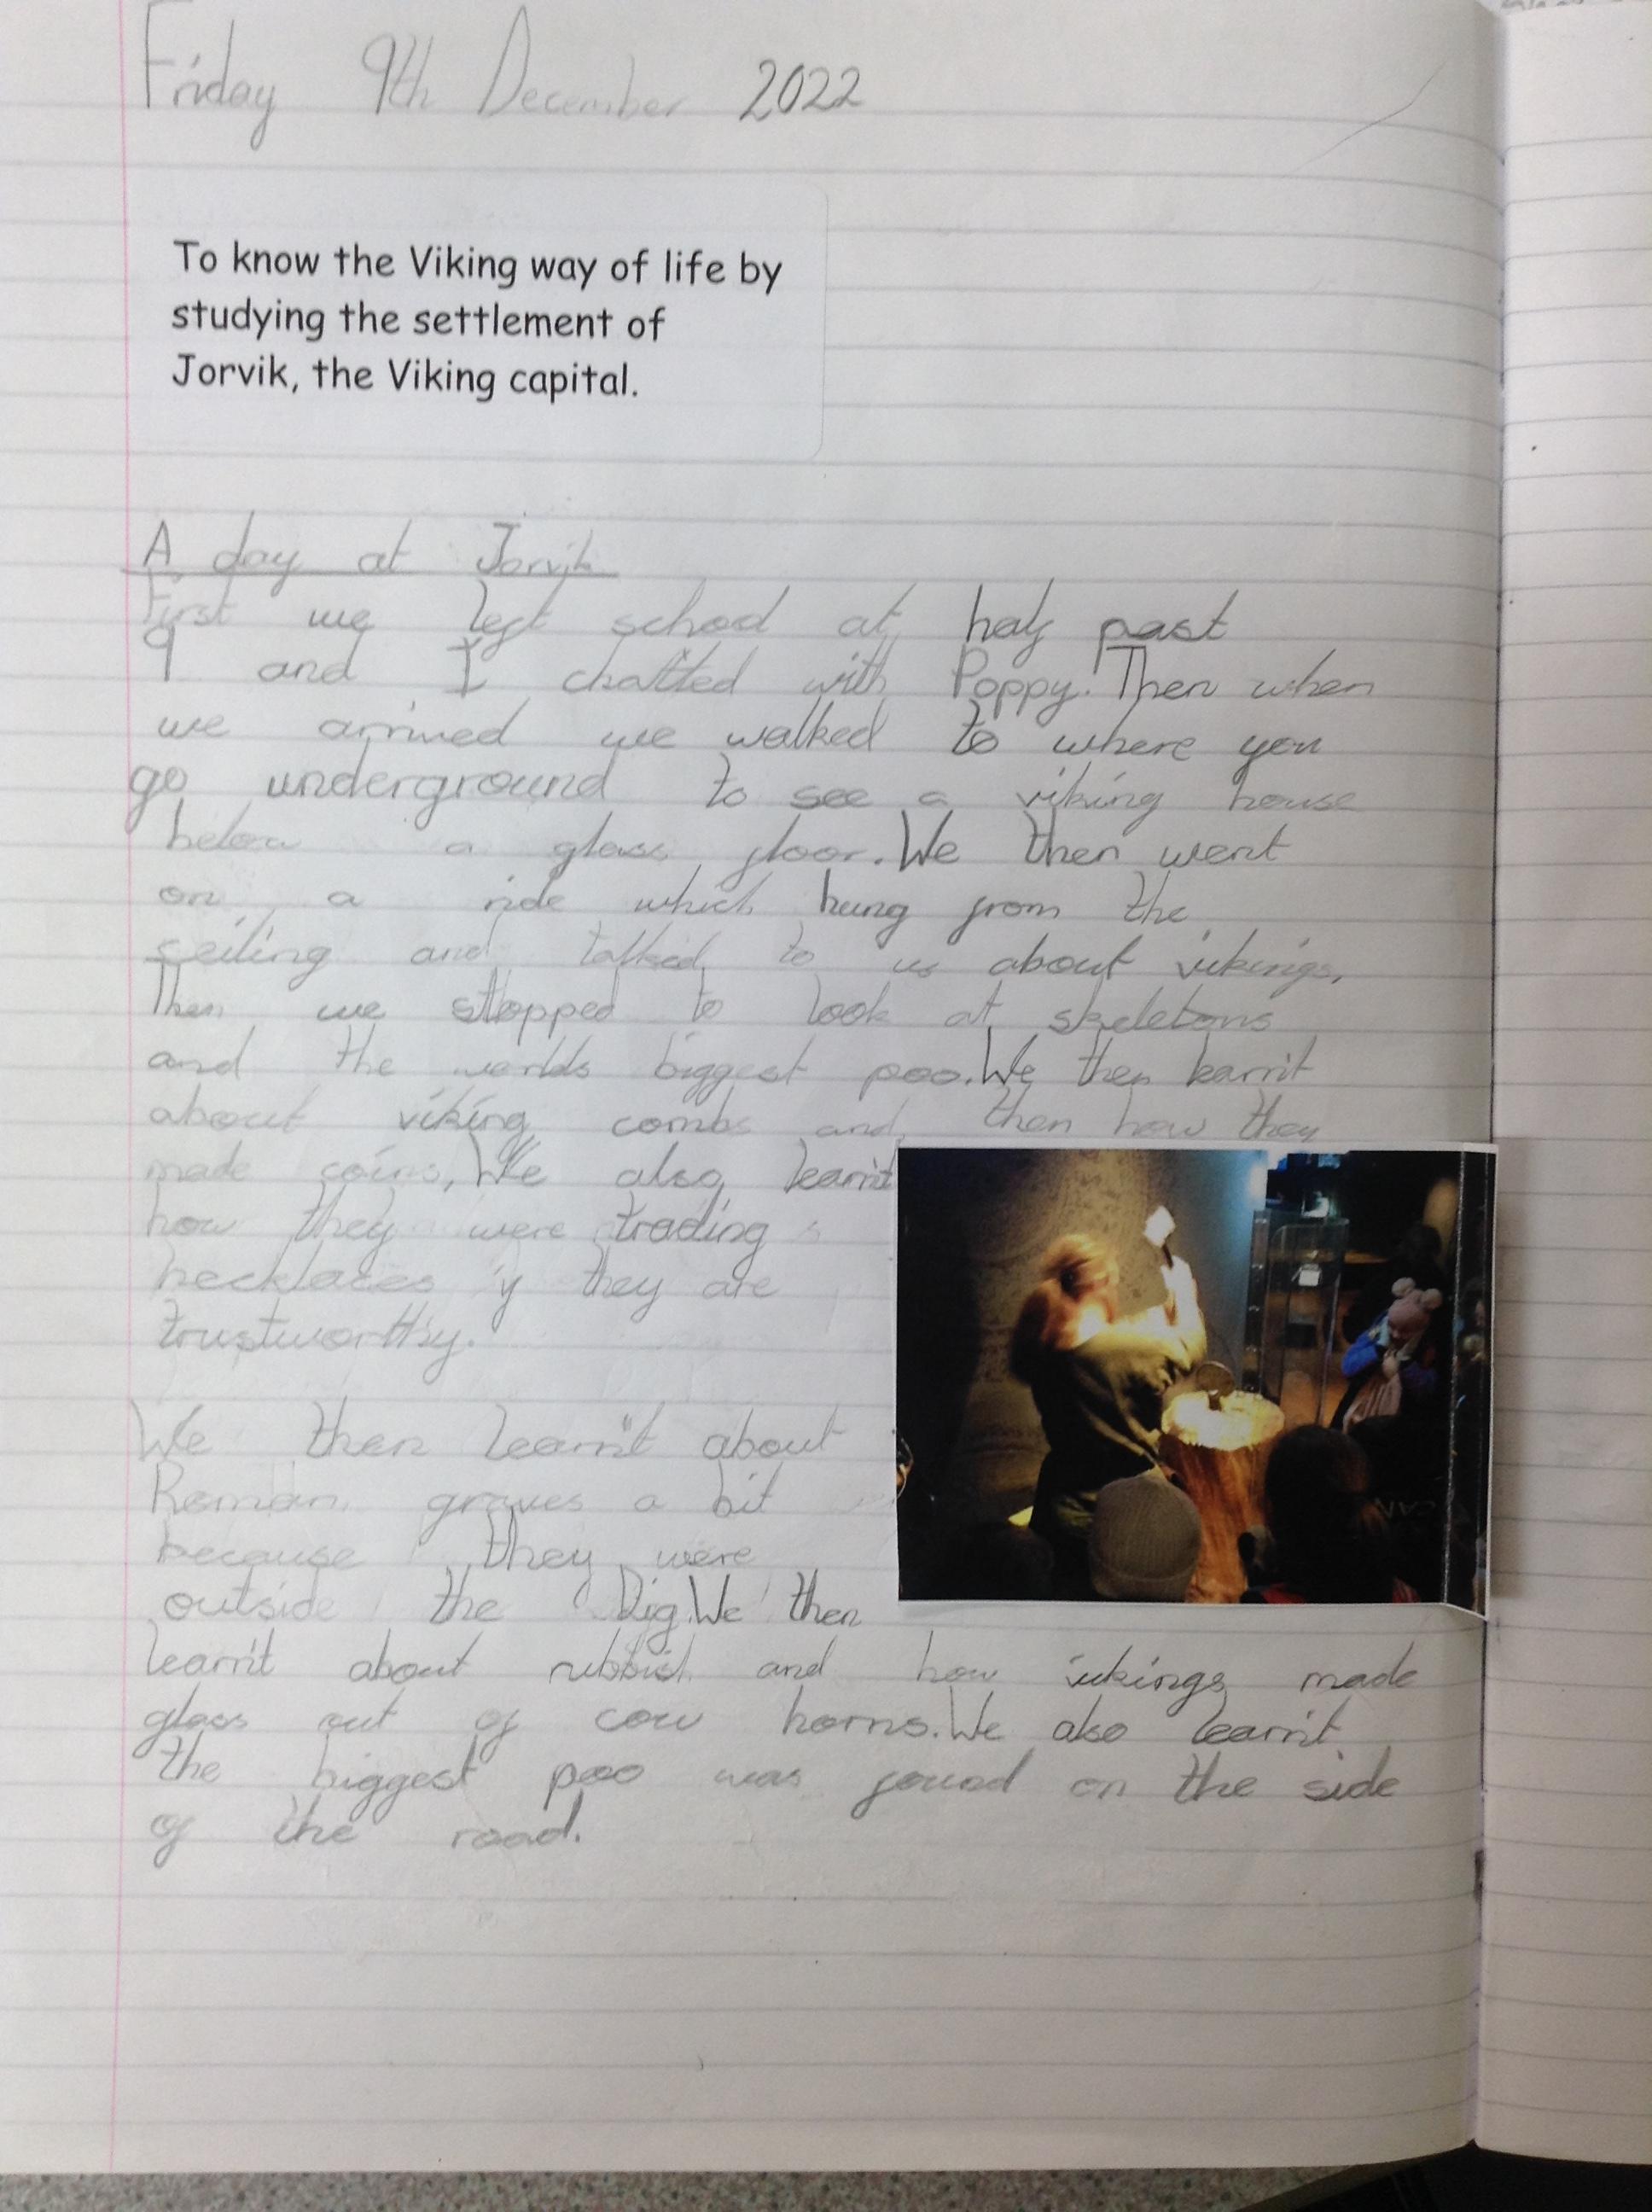 Friday 9th December 2022
To know the Viking way of life by
studying the settlement of
Jorvik, the Viking capital.
A day at Jorvik
First we left school at half past
9 and I chatted with Poppy. Then when
we arrived we walked to where you
go underground to see a viking house
below a glass floor. We then went
on a ride which hung from the
ceiling and talked to us about vikings.
Then we stopped to look at skeletons
and the worlds biggest poo. We then learn't
about viking combs and then how they
made coins, We also learn't
how they were trading
necklaces if they are
trustworthy.
We then learn't about
Roman graves a bit
because they were
outside the Dig. We then
learn't about rubbish and how vikings made
glass out of cow horns. We also learn't
the biggest poo was found on the side
of the road.